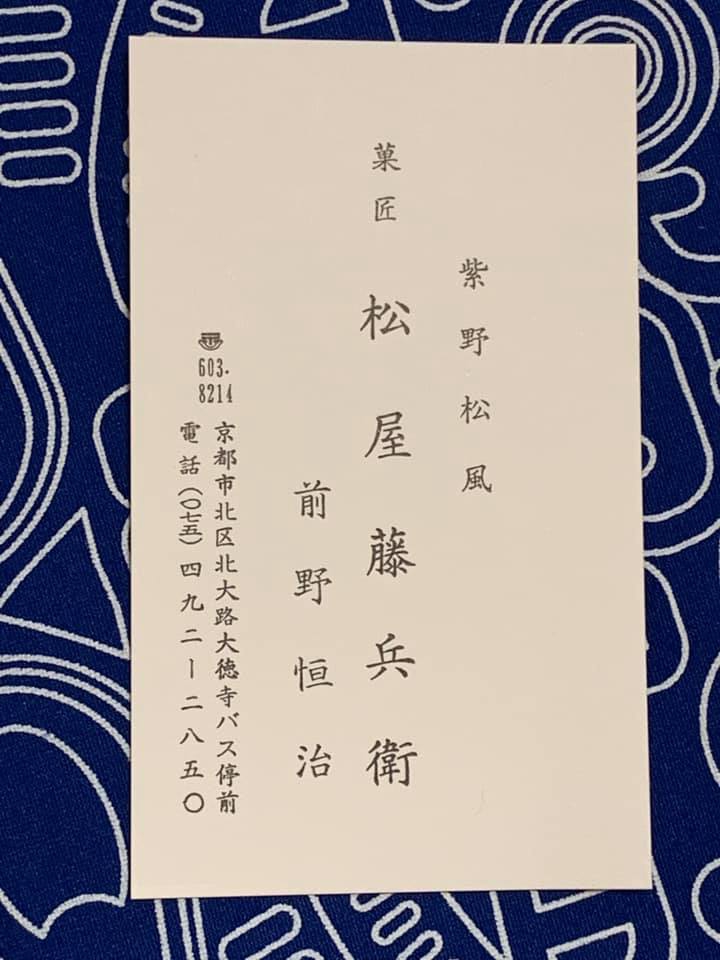 紫野松風
菓匠 松屋藤兵衛
前野恒治
603-8214
京都市北区北大路大徳寺バス停前
電話(〇七五)四九二ー二八五〇